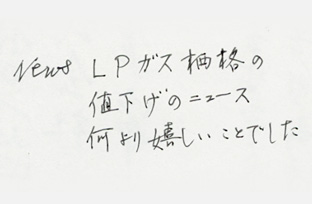 News LPガス価格の
値下げのニュース
何より嬉しいことでした